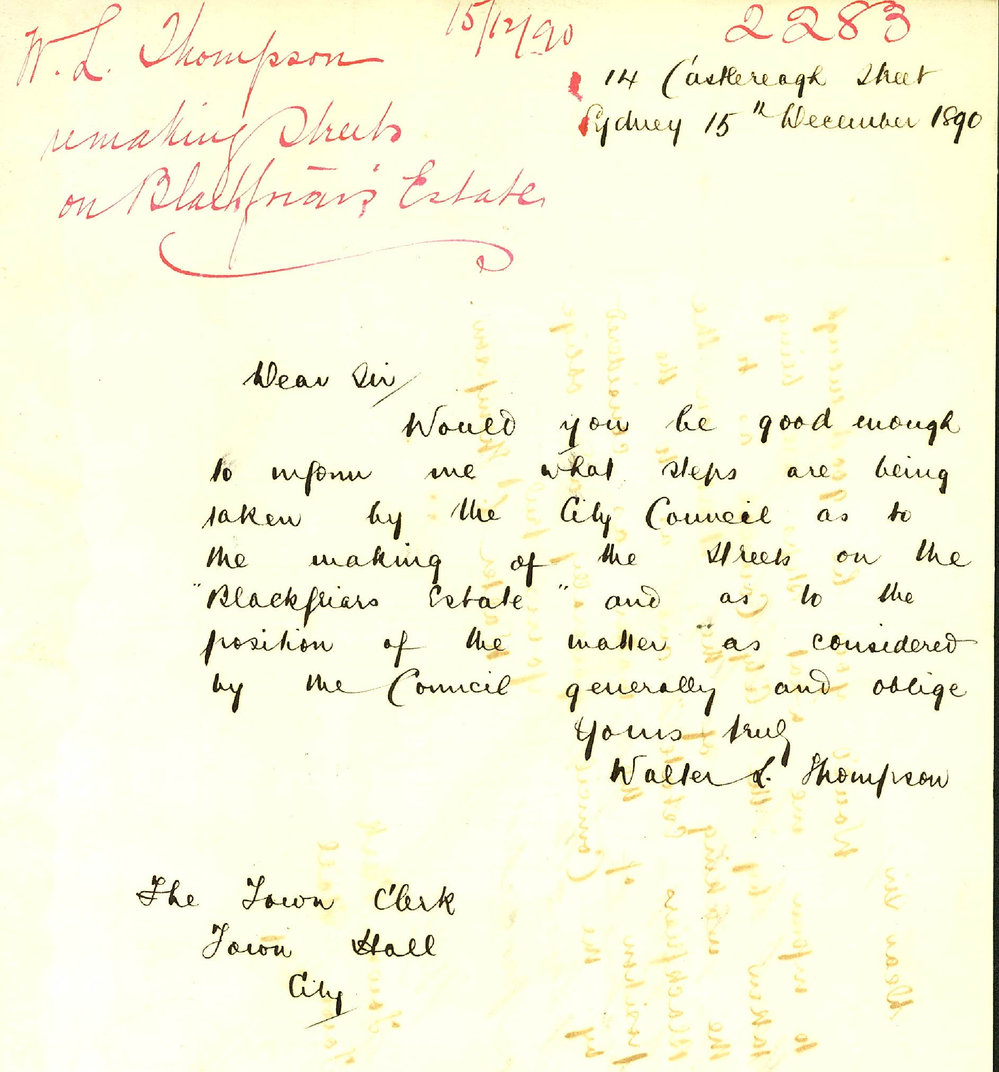 15/12/90
2283
W. L. Thompson
remaking Streets
on Blackfriars Estate
14 Castlereagh Street
Sydney 15th December 1890
Dear Sir/
Would you be good enough
to inform me what steps are being
taken by the City Council as to
the making of the Streets on the
"Blackfriars Estate" and as to the
position of the matter as considered
by the Council generally and oblige
Yours truly
Walter L. Thompson
The Town Clerk
Town Hall
City